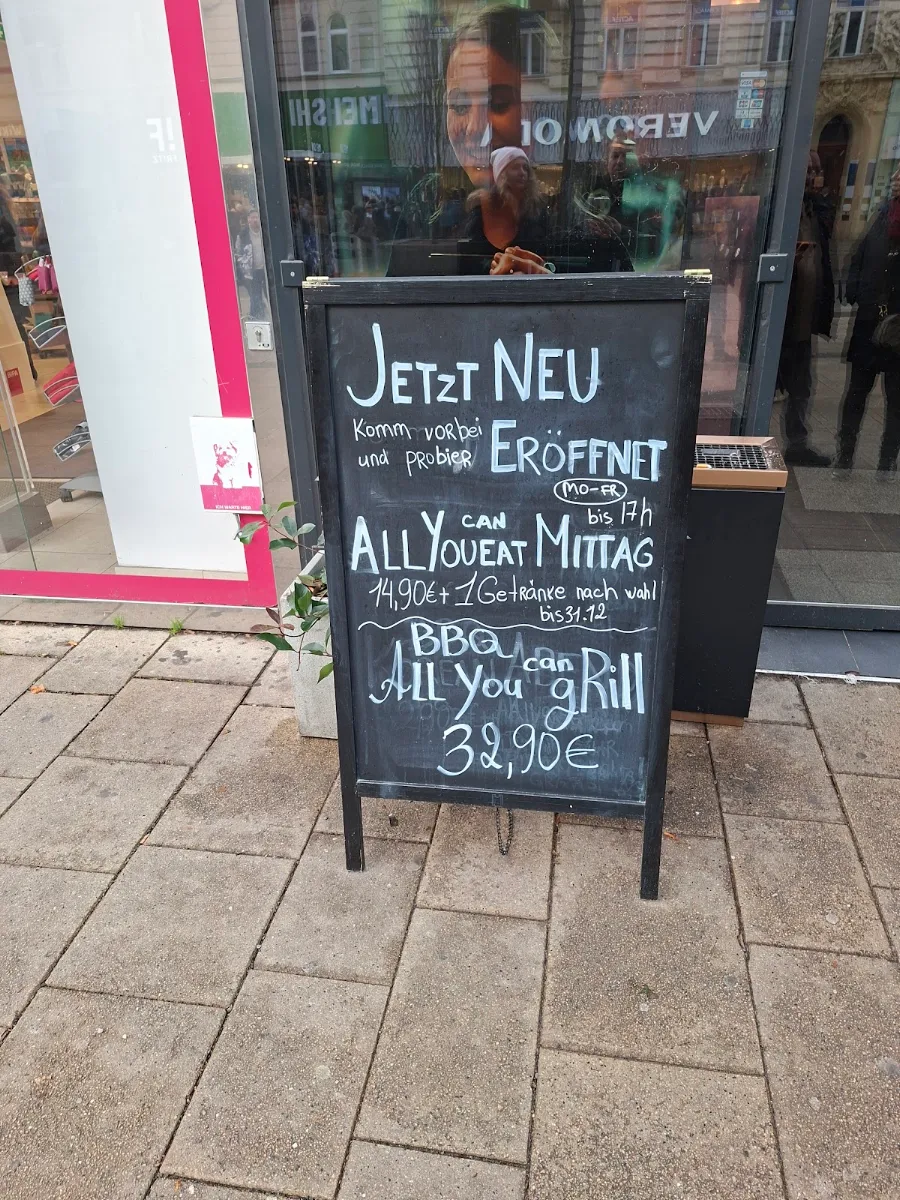 MEISHI
VERONO
JETZT NEU
Komm vorbei
und probier
ERÖFFNET
MO-FR
bis 17h
ALL YOU CAN EAT MITTAG
14,90€ + 1 Getränke nach wahl
bis 31.12
BBQ
ALL You can gRill
32,90€
ICH WARTE HIER